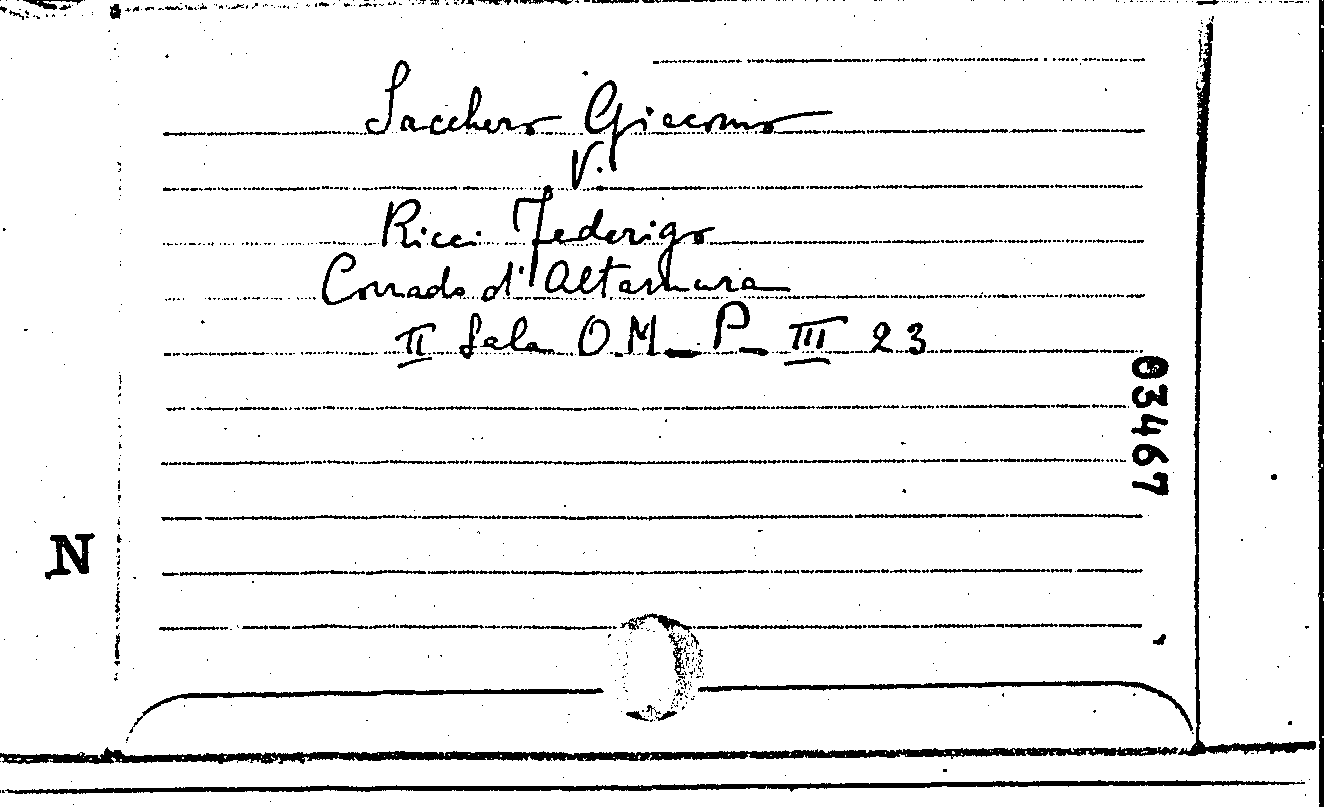 Sacchero Giacomo
V.
Ricci Federigo
Corrado d'Altamura
II Sala O.M. P. III 23
03467
N